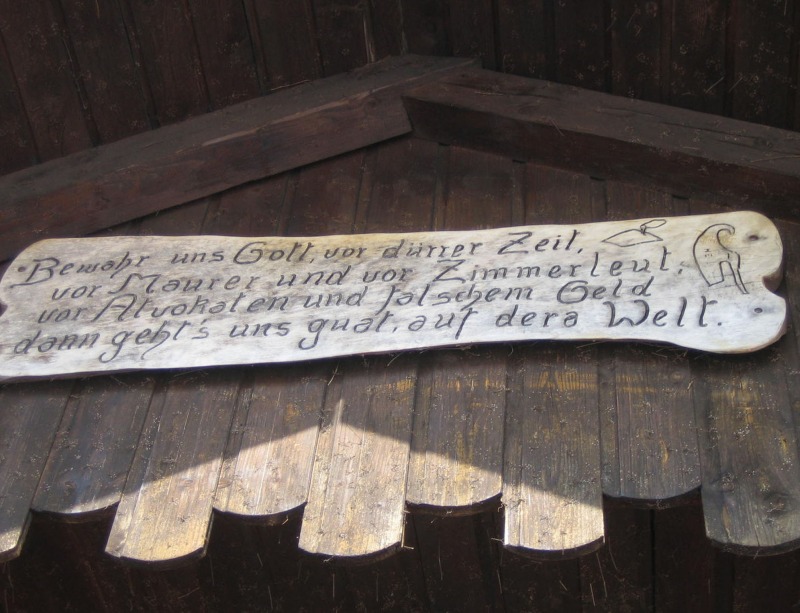 Bewahr uns Gott, vor dürrer Zeit,
vor Maurer und vor Zimmerleut,
vor Atvokaten und falschem Geld
dann geht's uns guat, auf dera Welt.